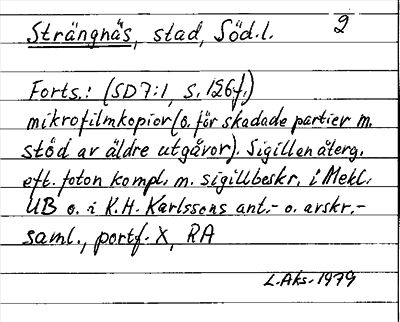 Strängnäs, stad, Söd.l. 2
Forts.: (SD 7:1, s. 126f.)
mikrofilmkopior (o. för skadade partier m.
stöd av äldre utgåvor). Sigillen återg.
eft. foton kompl. m. sigillbeskr. i Mekl.
UB o. i K.H. Karlssons ant.- o. avskr.-
saml., portf. X, RA
L. Aks. 1979